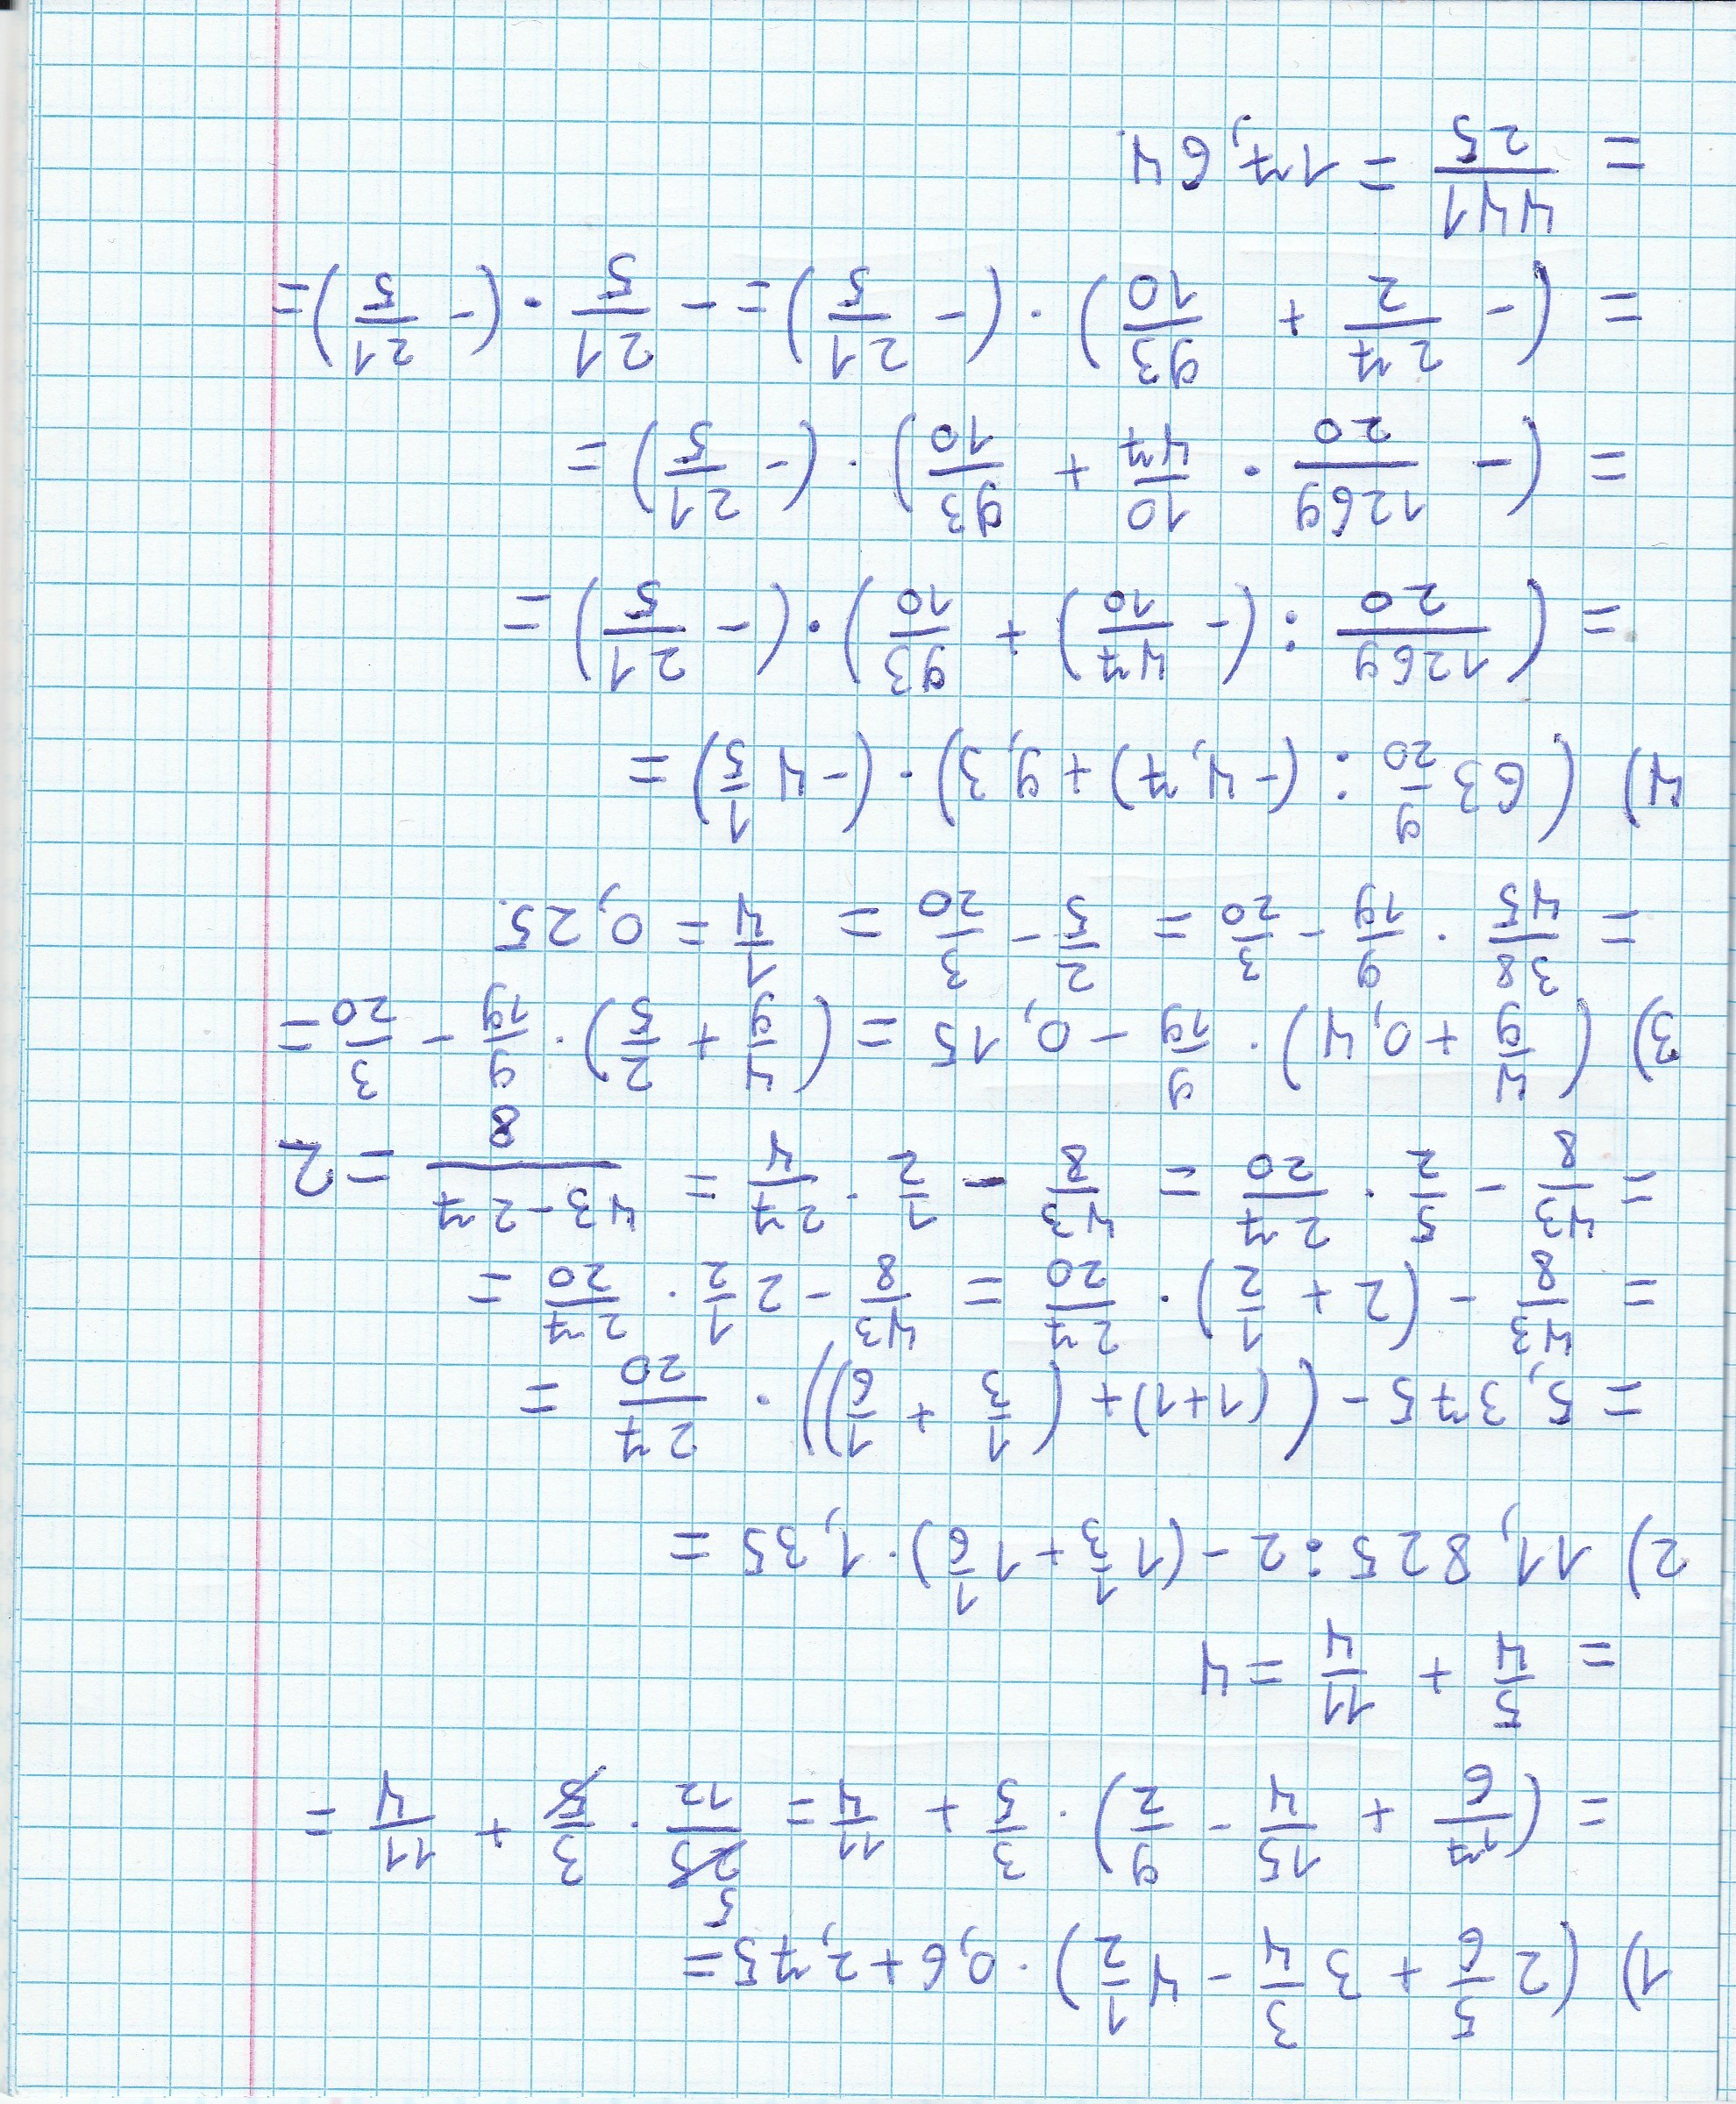 1) (2 5/6 + 3 3/4 - 4 1/2) · 0,6 + 2,75 =
= (17/6 + 15/4 - 9/2) · 3/5 + 11/4 = 25/12 · 3/5 + 11/4 =
5
= 5/4 + 11/4 = 4
2) 11,825 : 2 - (1 1/3 + 1 1/6) · 1,35 =
= 5,375 - ((1+1) + (1/3 + 1/6)) · 27/20 =
= 43/8 - (2 + 1/2) · 27/20 = 43/8 - 2 1/2 · 27/20 =
= 43/8 - 5/2 · 27/20 = 43/8 - 1/2 · 27/4 = 43-27/8 = 2
3) (4/9 + 0,4) · 9/19 - 0,15 = (4/9 + 2/5) · 9/19 - 3/20 =
= 38/45 · 9/19 - 3/20 = 2/5 - 3/20 = 1/4 = 0,25.
4) (63 9/20 : (-4,7) + 9,3) · (-4 1/5) =
= (1269/20 : (- 47/10) + 93/10) · (- 21/5) =
= (- 1269/20 · 10/47 + 93/10) · (- 21/5) =
= (- 27/2 + 93/10) · (- 21/5) = - 21/5 · (- 21/5) =
= 441/25 = 17,64.